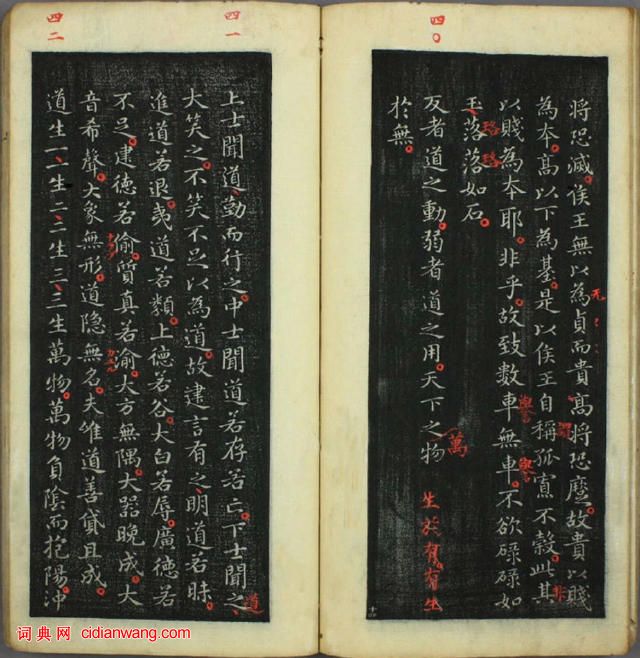 四〇
将恐滅侯王無以為貞而貴高将恐故貴以賤
无
為本高以下為基是以侯王自稱孤寡不穀此其
謂
非
以賤為本耶非乎故致數車無車不欲碌碌如
譽
譽
玉落落如石
珞珞
反者道之動弱者道之用天下之物生於有有生
萬
於無
四一
上士聞道勤而行之中士聞道若存若亡下士聞之
道
大笑之不笑不足以為道故建言有之明道若昧
進道若退夷道若類上德若谷大白若辱廣德若
不足建德若偷質真若渝大方無隅大器晚成大
音希聲大象無形道隐無名夫唯道善貸且成
四二
道生一一生二二生三三生萬物萬物負陰而抱陽沖
词典网 cidianwang.com